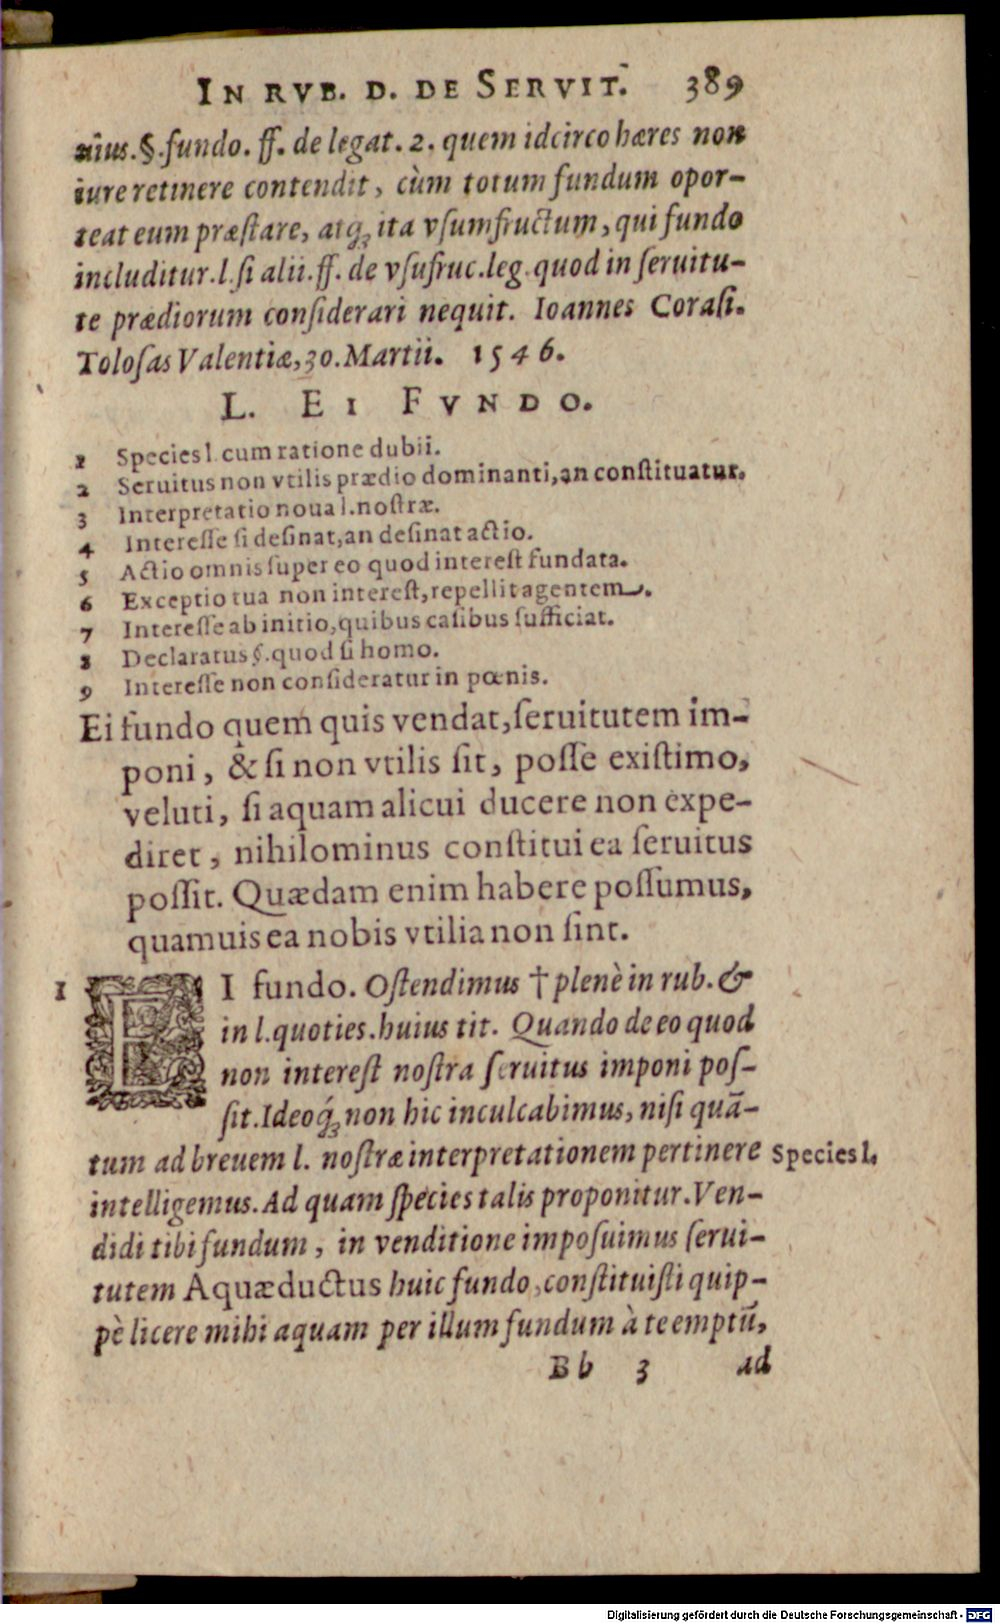 IN RVB. D. DE SERVIT. 389
nius.§.fundo. ff. de legat. 2. quem idcirco hæres non
iure retinere contendit, cùm totum fundum opor-
teat eum præſtare, atq; ita vſumfructum, qui fundo
includitur.l.ſi alii.ff. de vſufruc.leg.quod in ſeruitu-
te prædiorum conſiderari nequit. Ioannes Coraſi.
Toloſas Valentiæ,30.Martii. 1546.
L. EI FVNDO.
1 Species l.cum ratione dubii.
2 Seruitus non vtilis prædio dominanti,an conſtituatur.
3 Interpretatio noua l.noſtræ.
4 Intereſſe ſi deſinat,an deſinat actio.
5 Actio omnis ſuper eo quod intereſt fundata.
6 Exceptio tua non intereſt,repellit agentem.
7 Intereſſe ab initio,quibus caſibus ſufficiat.
8 Declaratus §.quod ſi homo.
9 Intereſſe non conſideratur in pœnis.
Ei fundo quem quis vendat,ſeruitutem im-
poni, & ſi non vtilis ſit, poſſe exiſtimo,
veluti, ſi aquam alicui ducere non expe-
diret, nihilominus conſtitui ea ſeruitus
poſſit. Quædam enim habere poſſumus,
quamuis ea nobis vtilia non ſint.
1 EI fundo. Oſtendimus † plenè in rub. &
in l.quoties.huius tit. Quando de eo quod
non intereſt noſtra ſeruitus imponi poſ-
ſit.Ideoq́; non hic inculcabimus, niſi quā-
tum ad breuem l. noſtræ interpretationem pertinere Species l.
intelligemus. Ad quam ſpecies talis proponitur. Ven-
didi tibi fundum, in venditione impoſuimus ſerui-
tutem Aquæductus huic fundo, conſtituiſti quip-
pè licere mihi aquam per illum fundum à te emptū,
Bb 3 ad
Digitalisierung gefördert durch die Deutsche Forschungsgemeinschaft - DFG